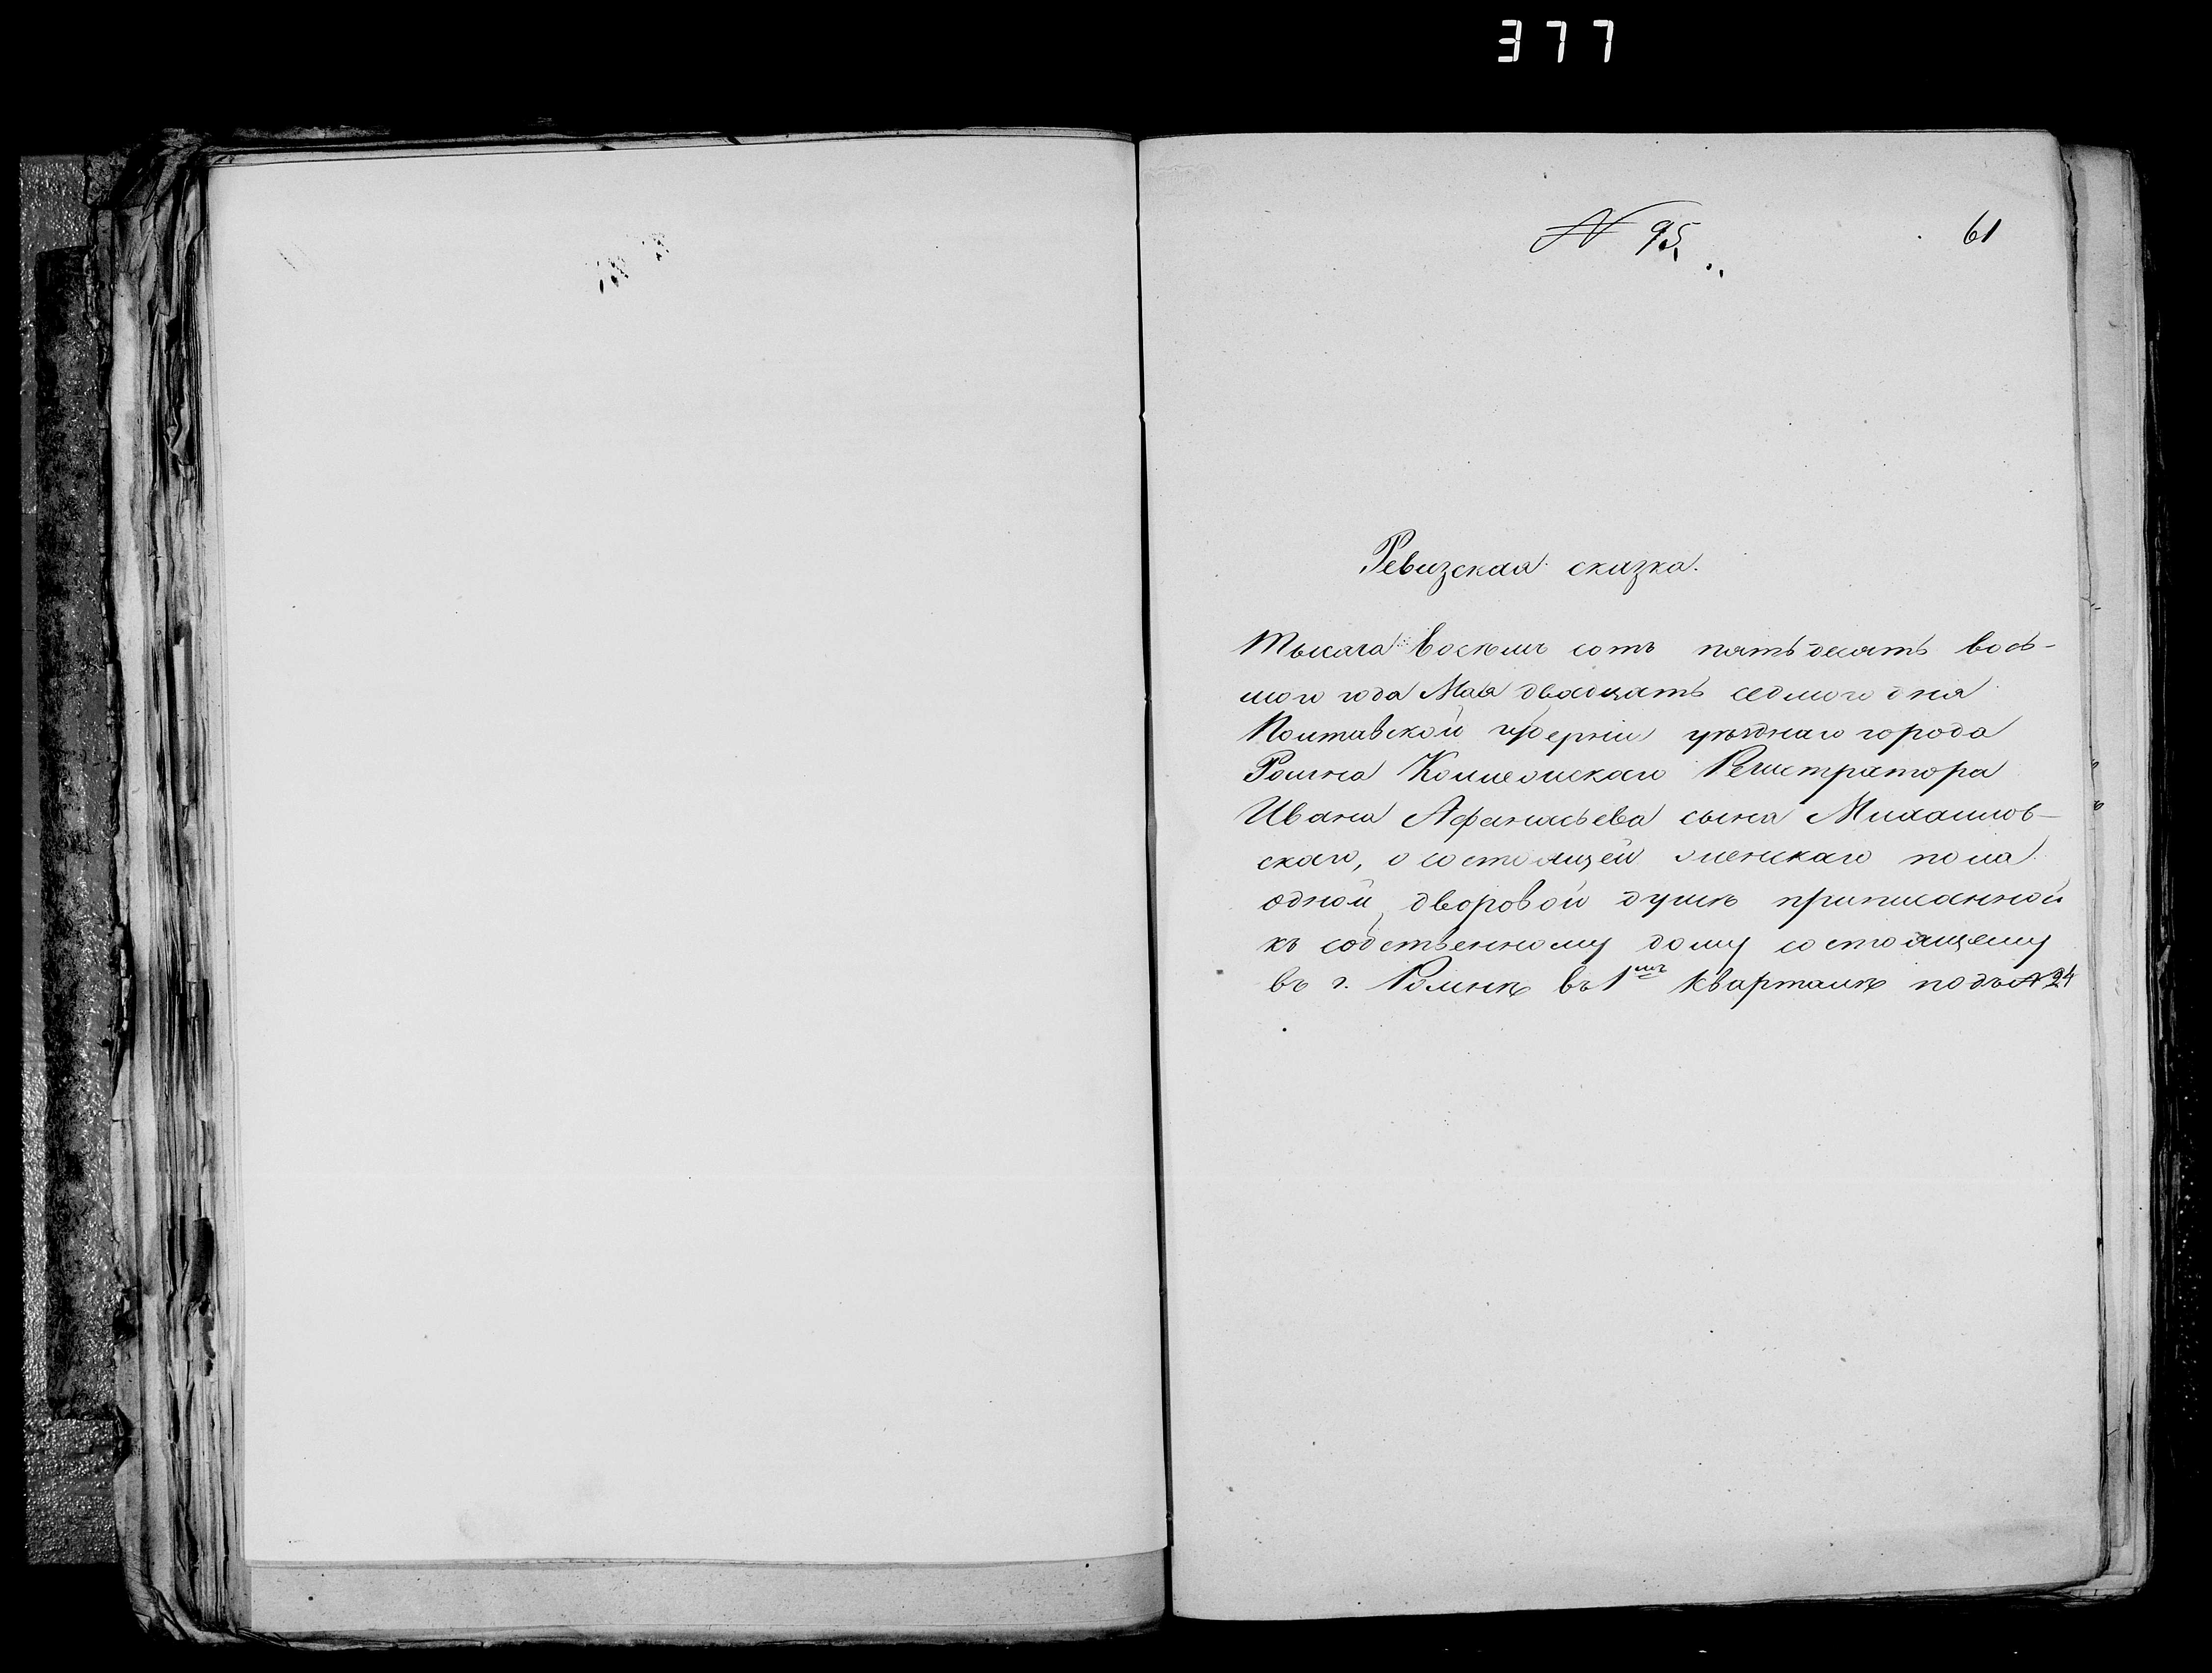 377
№ 95.
61
Ревизская сказка.
Тысяча восемь сотъ пятьдесятъ вось-
мого года Мая двадцать седмого дня
Полтавской губерніи уѣзднаго города
Ромна Коллежскаго Регистратора
Ивана Афанасьева сына Михайлов-
скаго, о состоящей женскаго пола
одной дворовой душѣ приписанной
къ собственному дому состоящему
въ г. Ромнѣ въ 1мъ кварталѣ подъ № 24